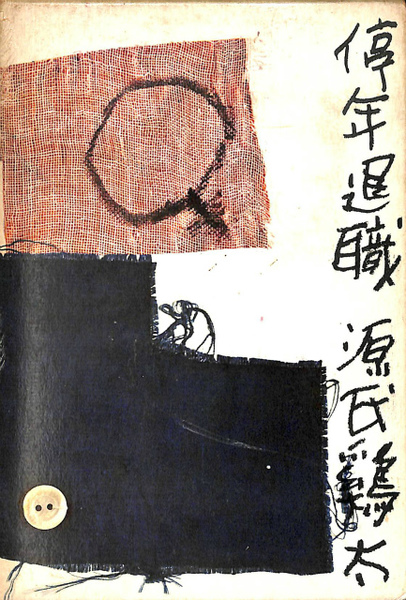 停年退職 源氏鶏太